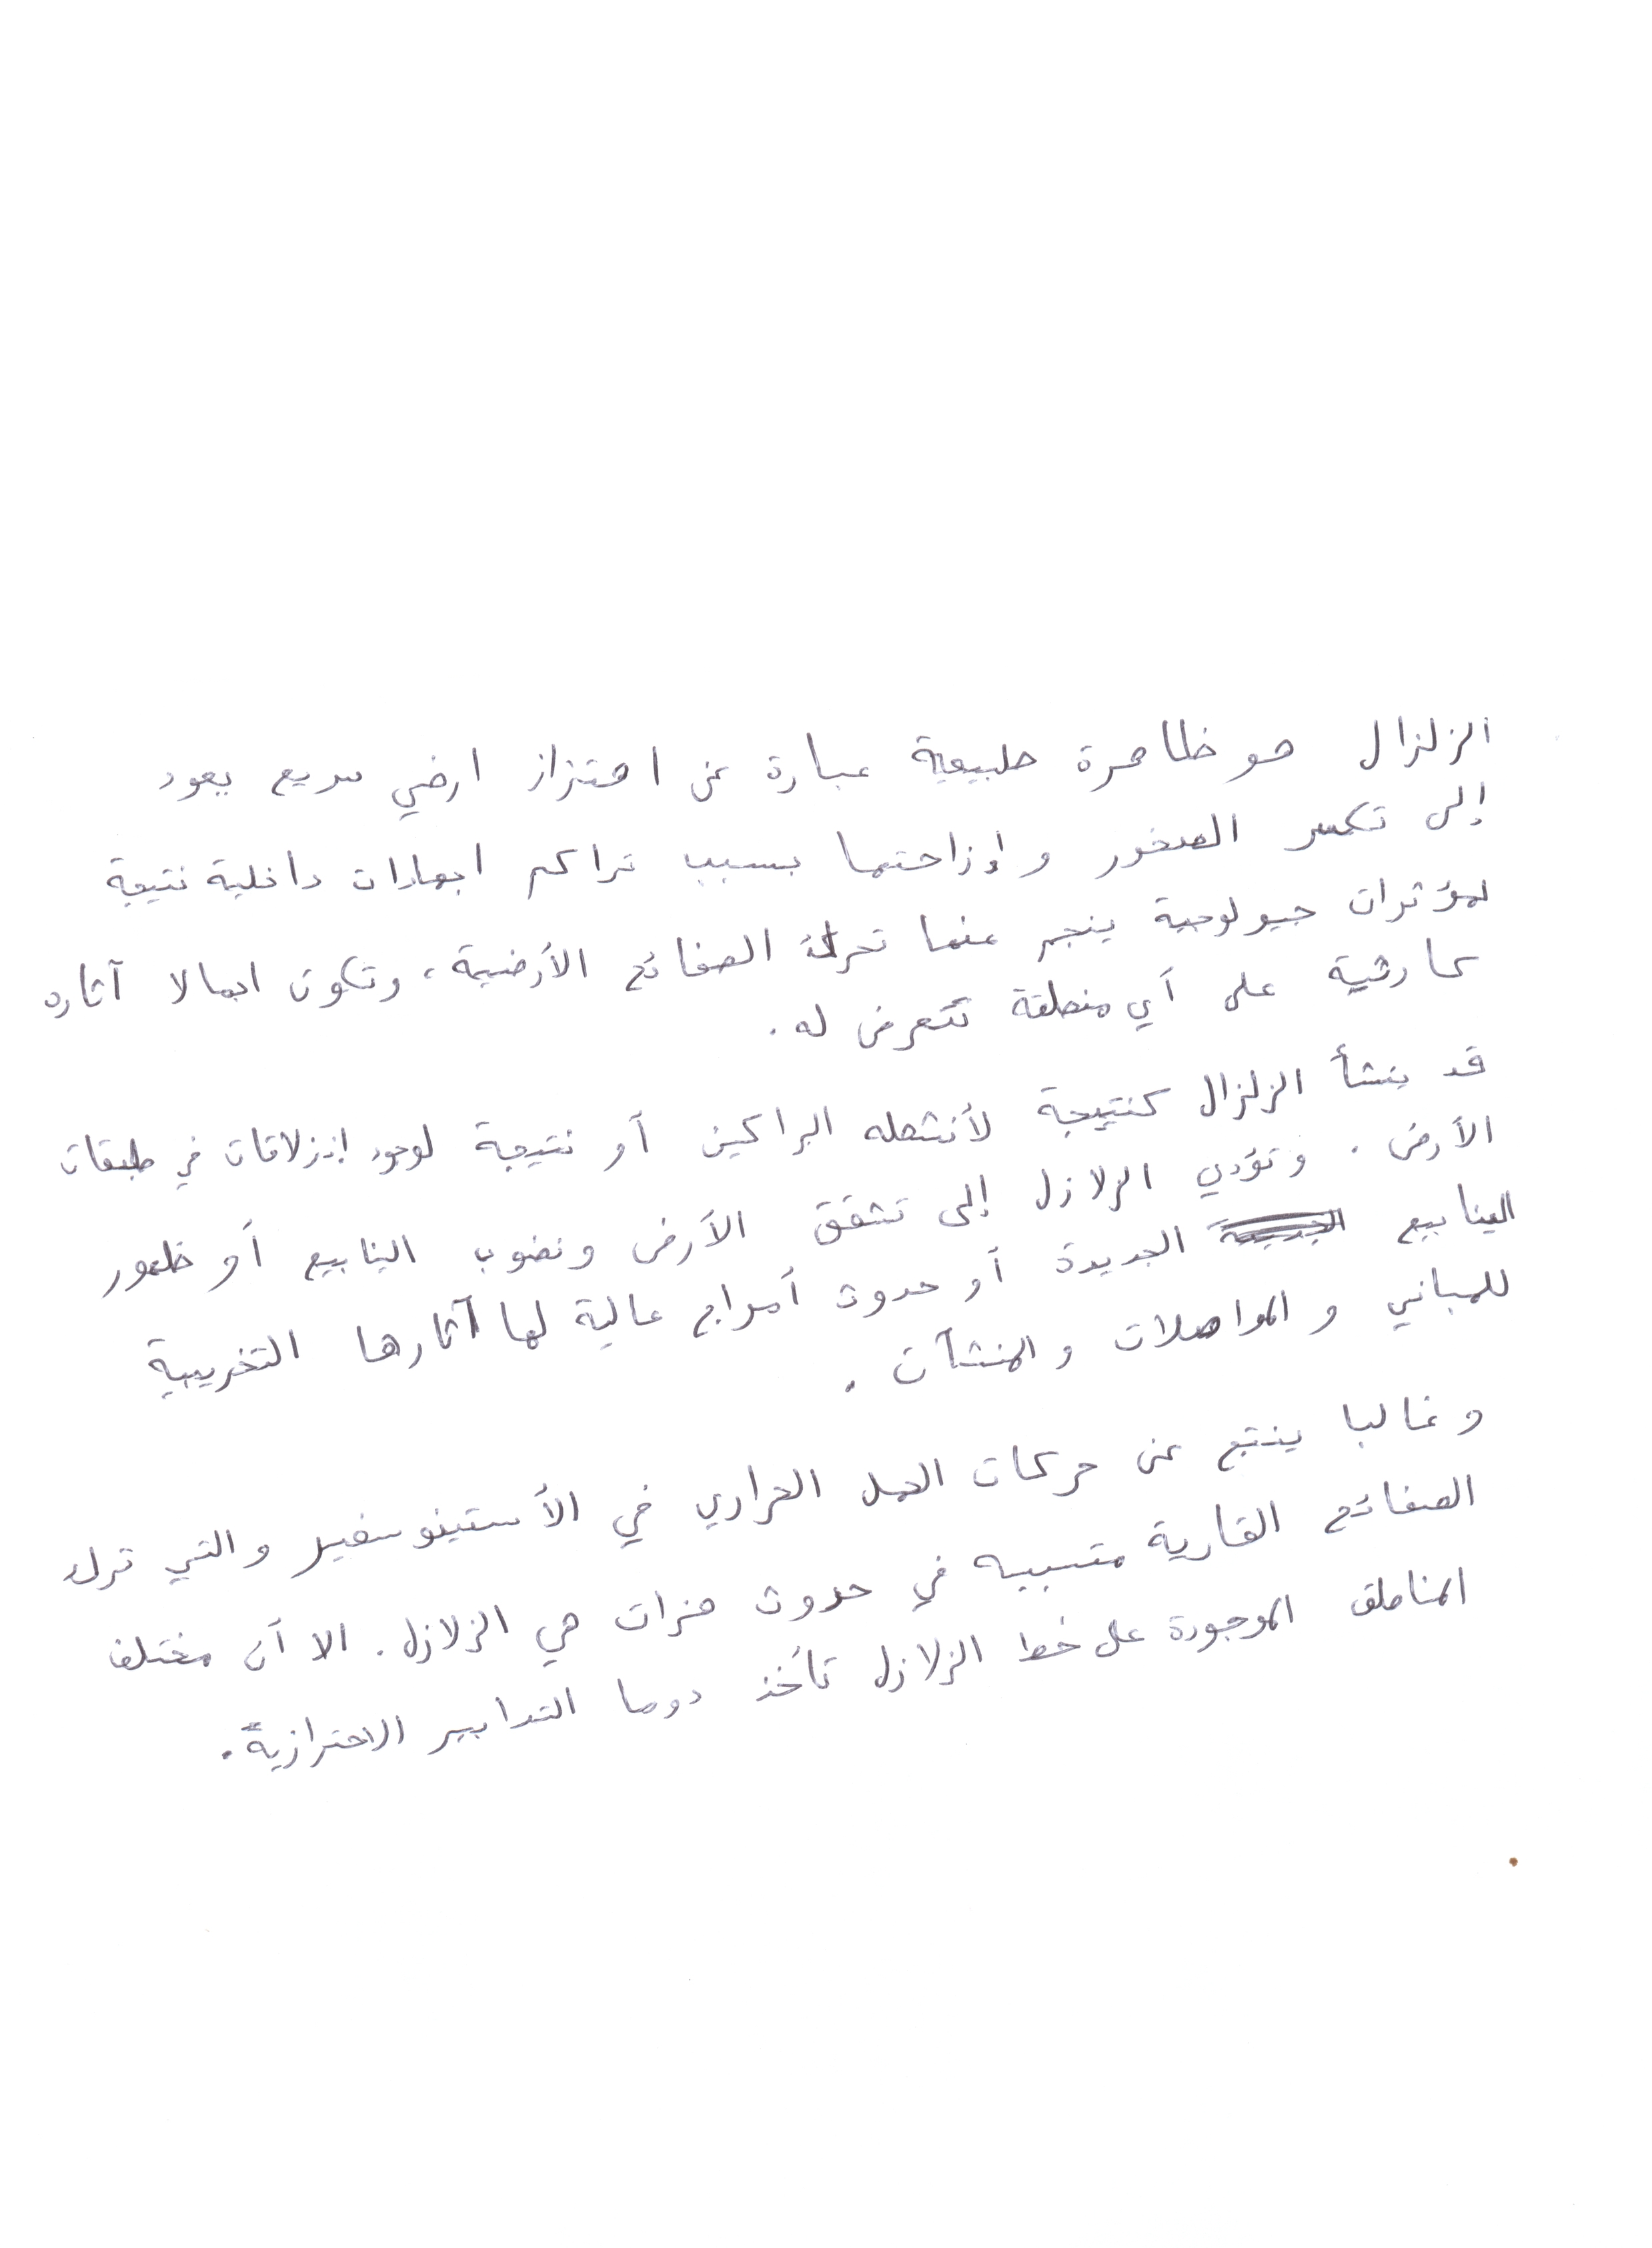 الزلزال هو ظاهرة طبيعية عبارة عن اهتزاز ارضي سريع يعود
إلى تكسر الصخور وإزاحتها بسبب تراكم اجهادات داخلية نتيجة
لمؤثرات جيولوجية ينجم عنها تحرك الصفائح الأرضية، وتكون اجمالا آثاره
كارثية على أي منطقة تتعرض له.
قد ينشأ الزلزال كنتيجة لأنشطه البراكين أو نتيجة لوجود إنزلاقات في طبقات
الأرض. وتؤدي الزلازل إلى تشقق الأرض ونضوب الينابيع أو ظهور
الينابيع الجديدة أو حدوث أمواج عالية لها آثارها التخريبية
للمباني و المواصلات و المنشآت.
و غالبا ينتج عن حركات الحمل الحراري في الأستينوسفير و التي تحرك
الصفائح القارية متسببه في حدوث هزات هي الزلازل. الا أن مختلف
المناطق الموجودة على خط الزلازل تأخذ دوما التدابير الاحترازية.